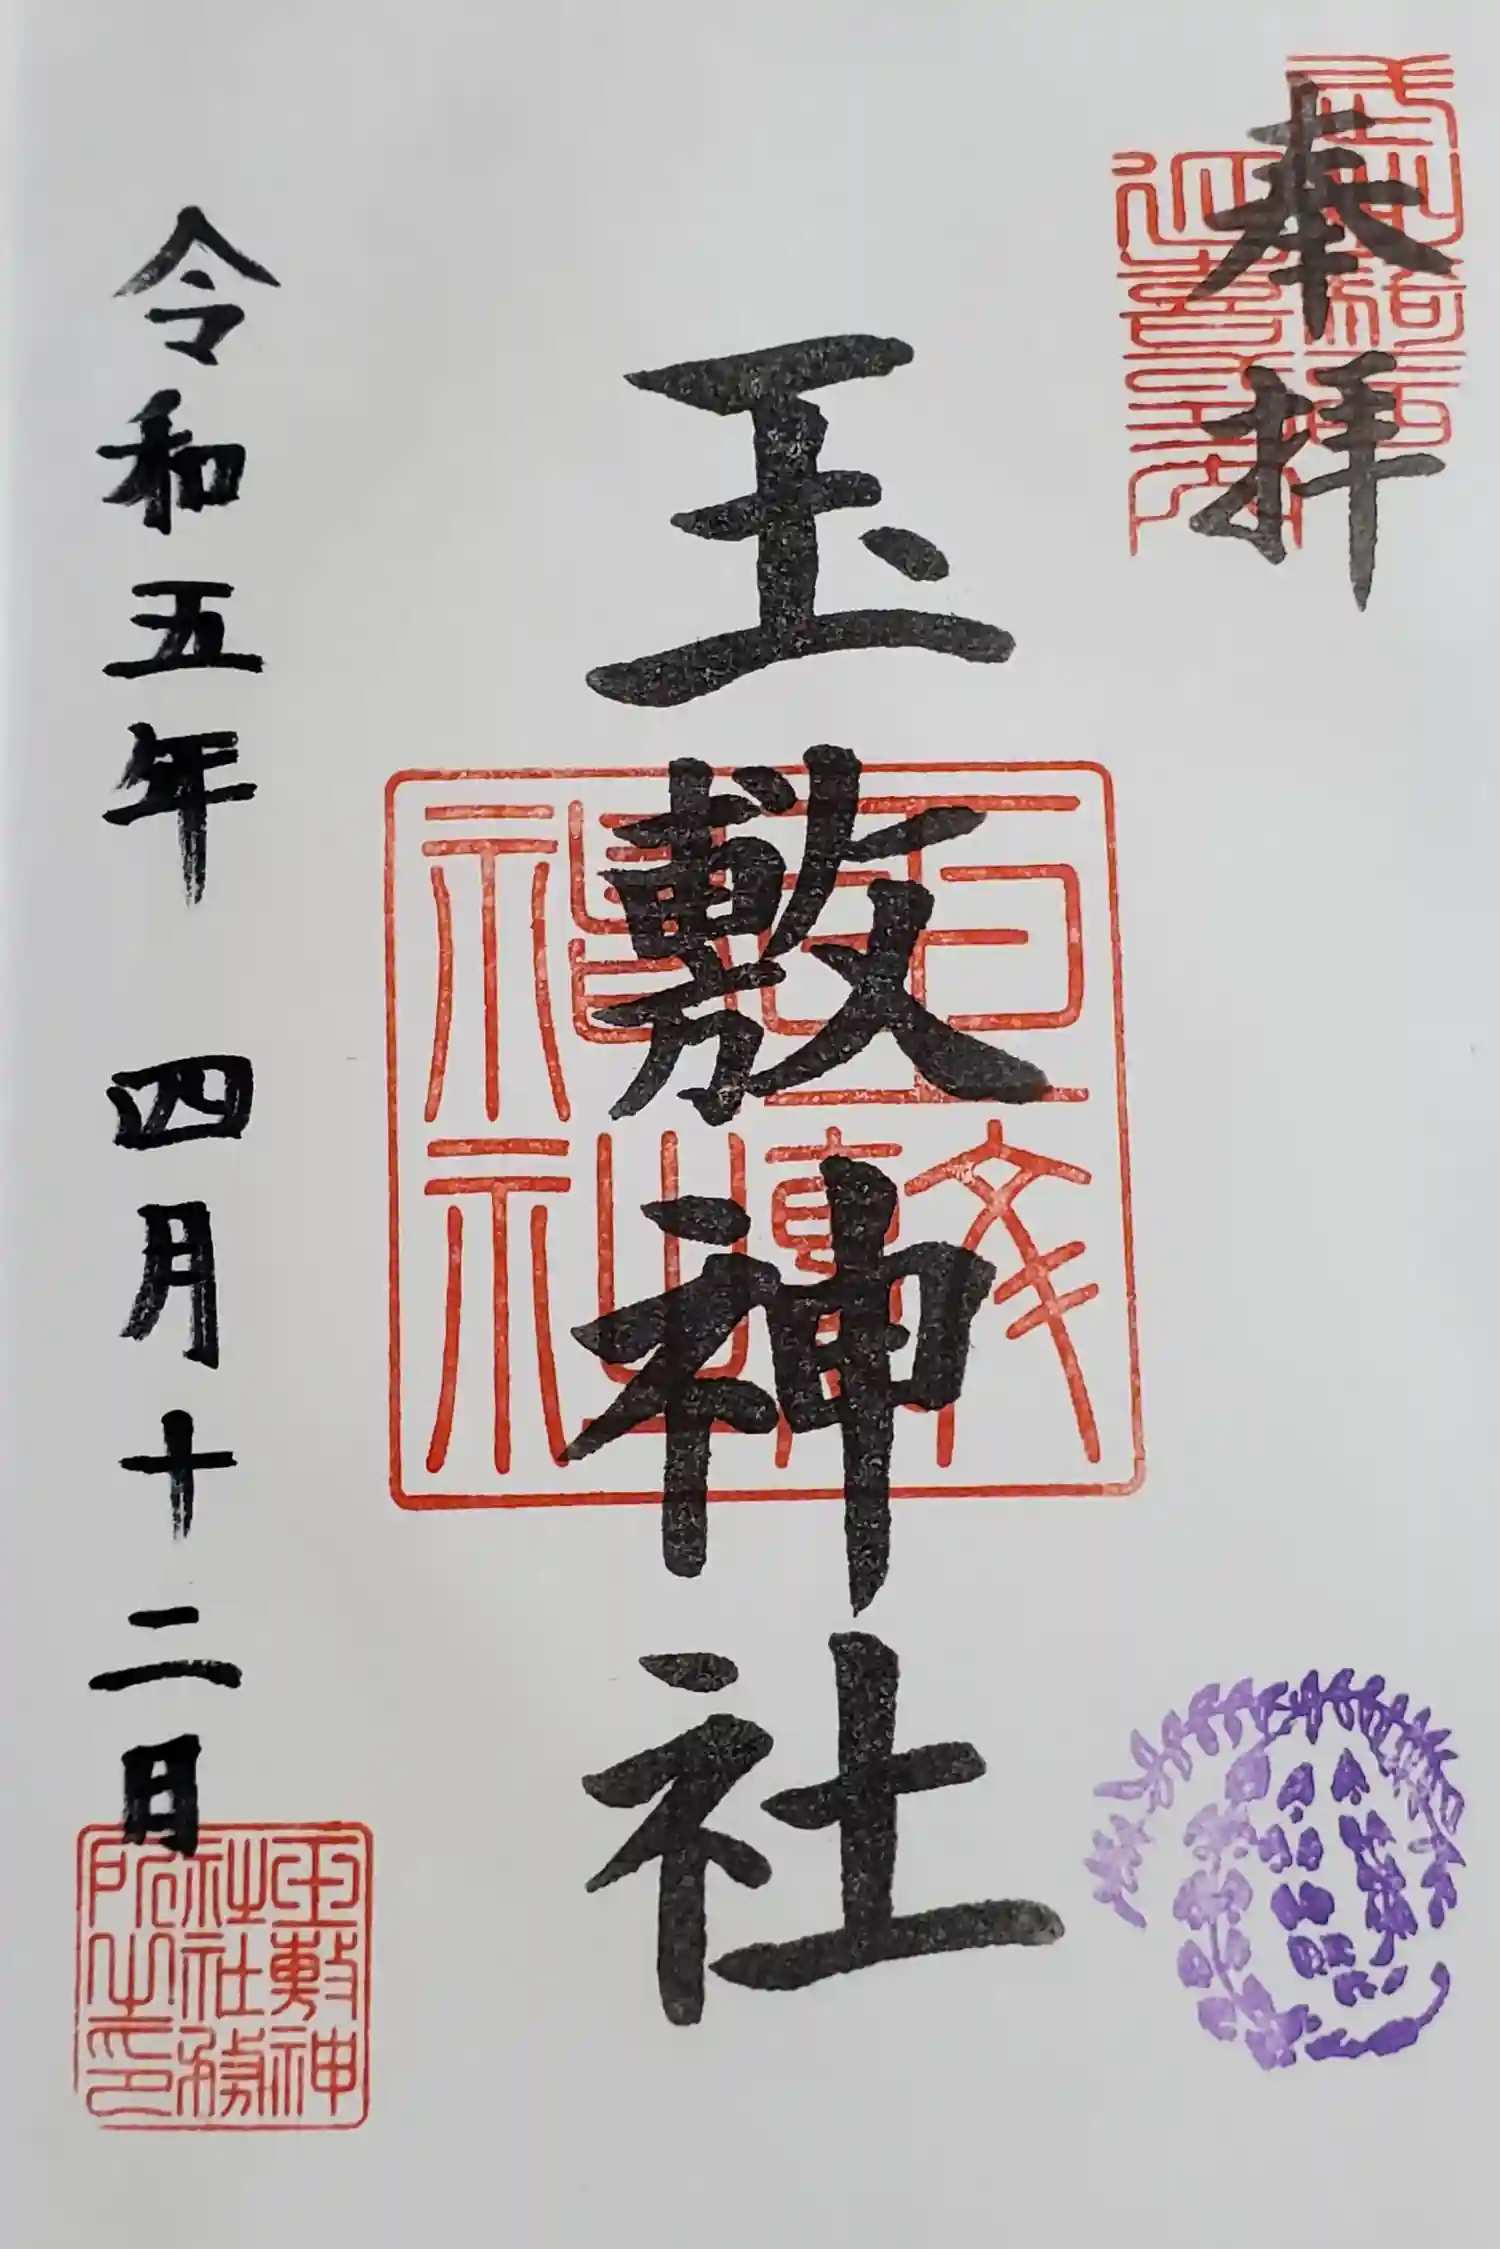 奉拝
玉敷神社
令和五年 四月十二日
玉敷神
社社務
所之印